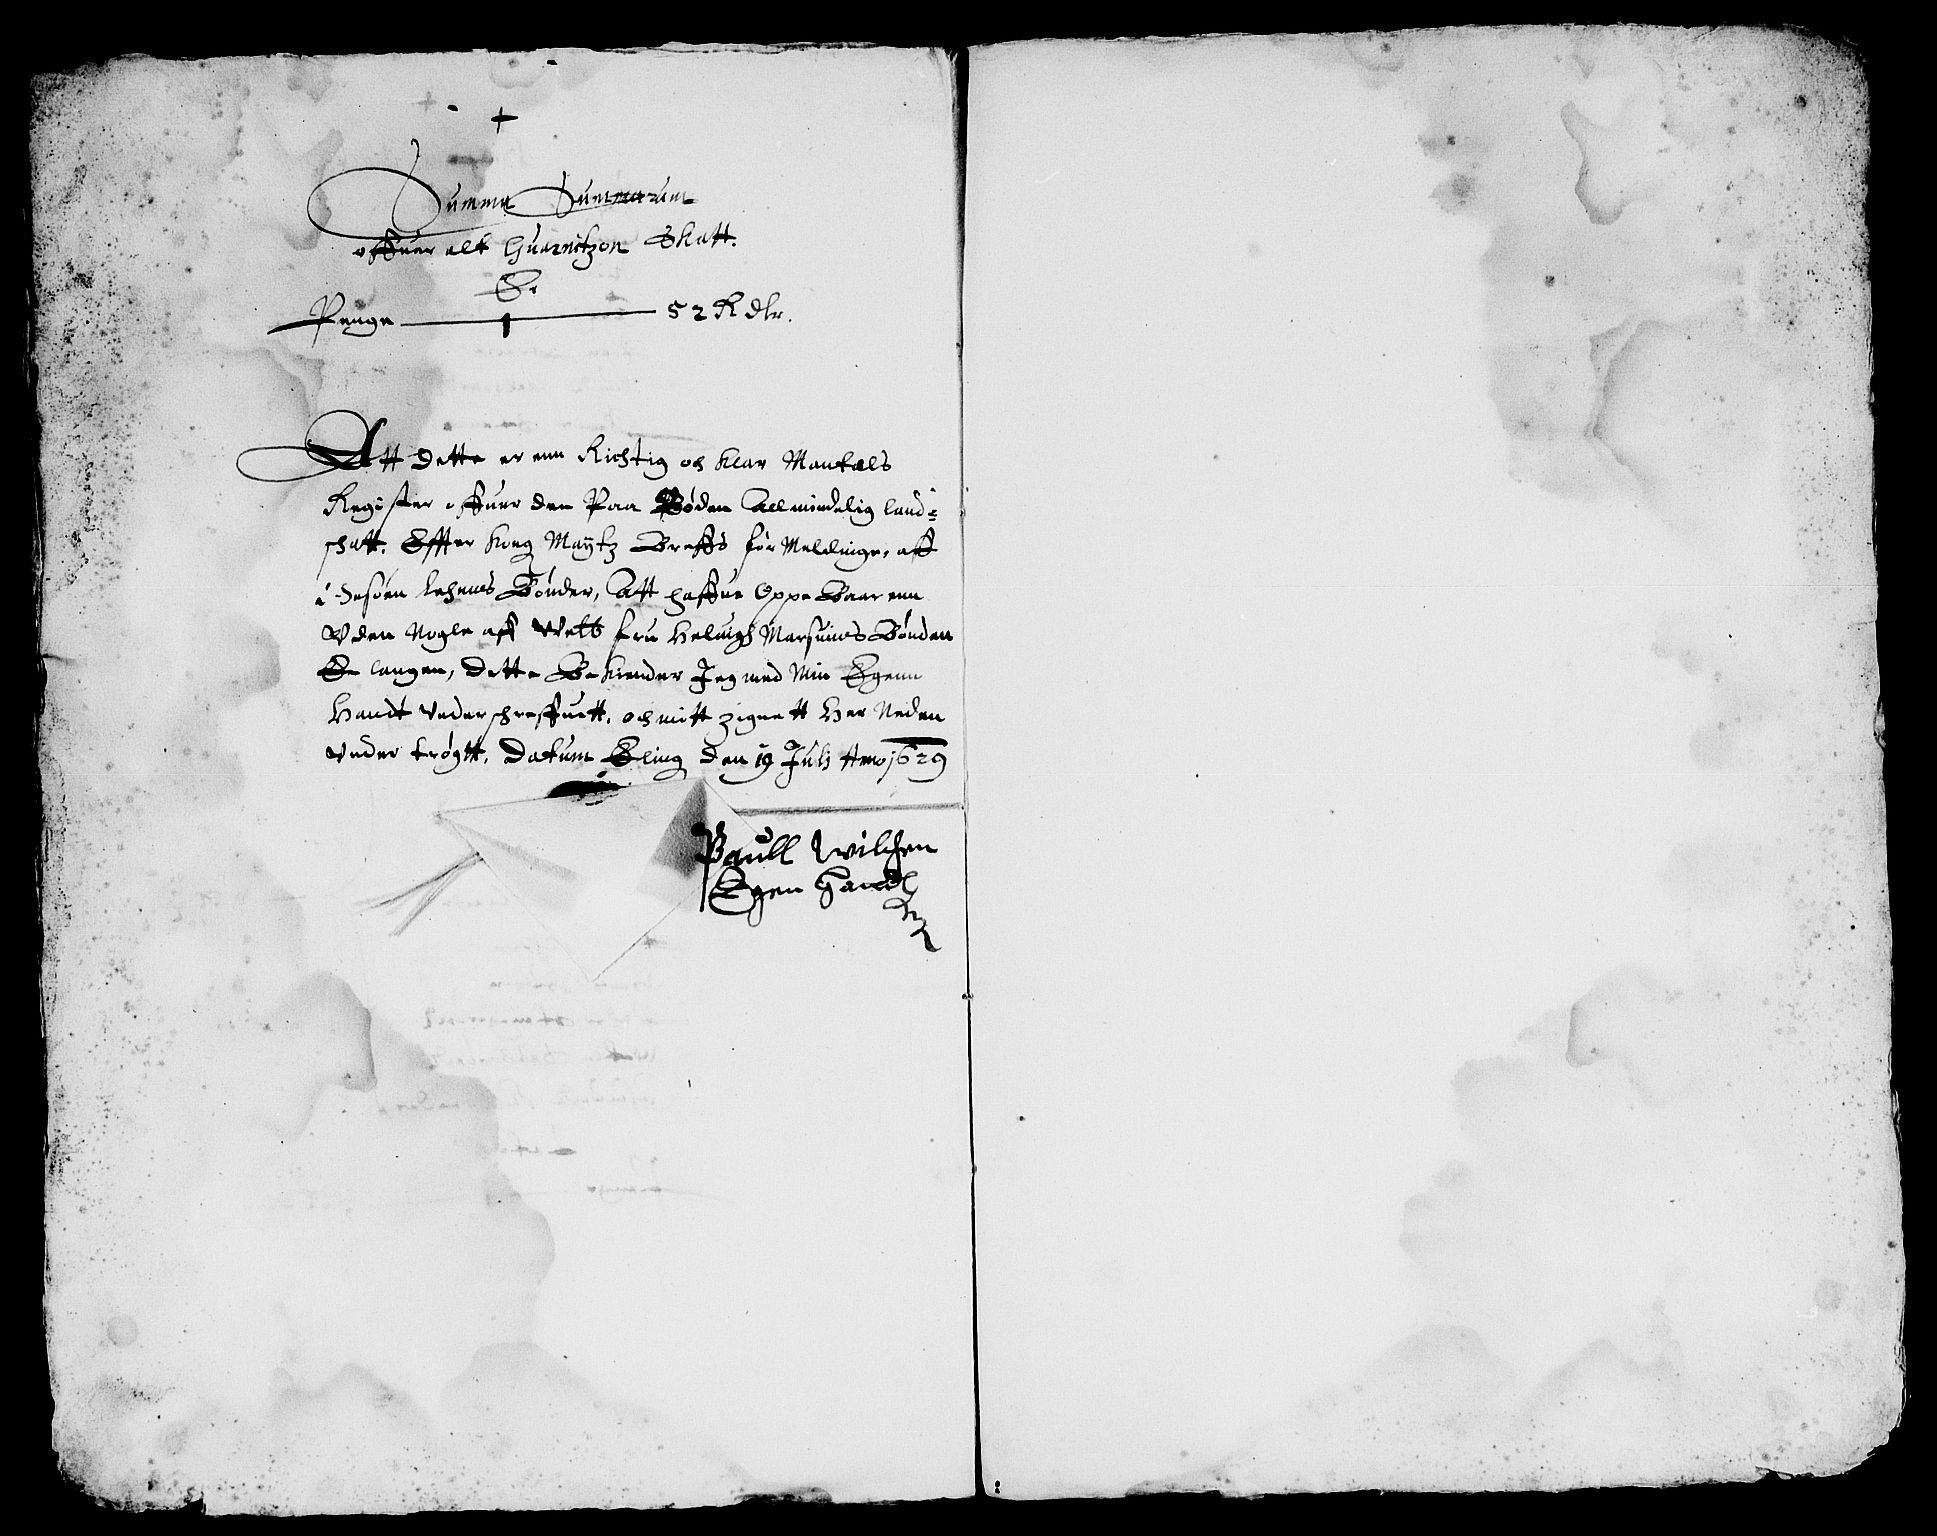 Summa Summarum
offuer alt Guarnitzon Skatt.
Er
Penge 52 R dlr.
Att dette er enn Richtig och klar Mantals
Register offuer den Paa Bøden Allmindelig land-
skatt. Effter Kong Maytz Breffs for Meldinge, aff
Lehenns Bønder, Att haffue Oppe Baarenn
Vden Nogle aff Welb fru Heluigh Marsuines Bønder
Er langen, Dette Bekiender Jeg med Min Egenn
Handt Vnderschreffuett, och mitt zignett Her Neden
Vnder trøgtt. Datum Eling den 19 Julij Anno 1629
Paull Nilssen
Egen Handt